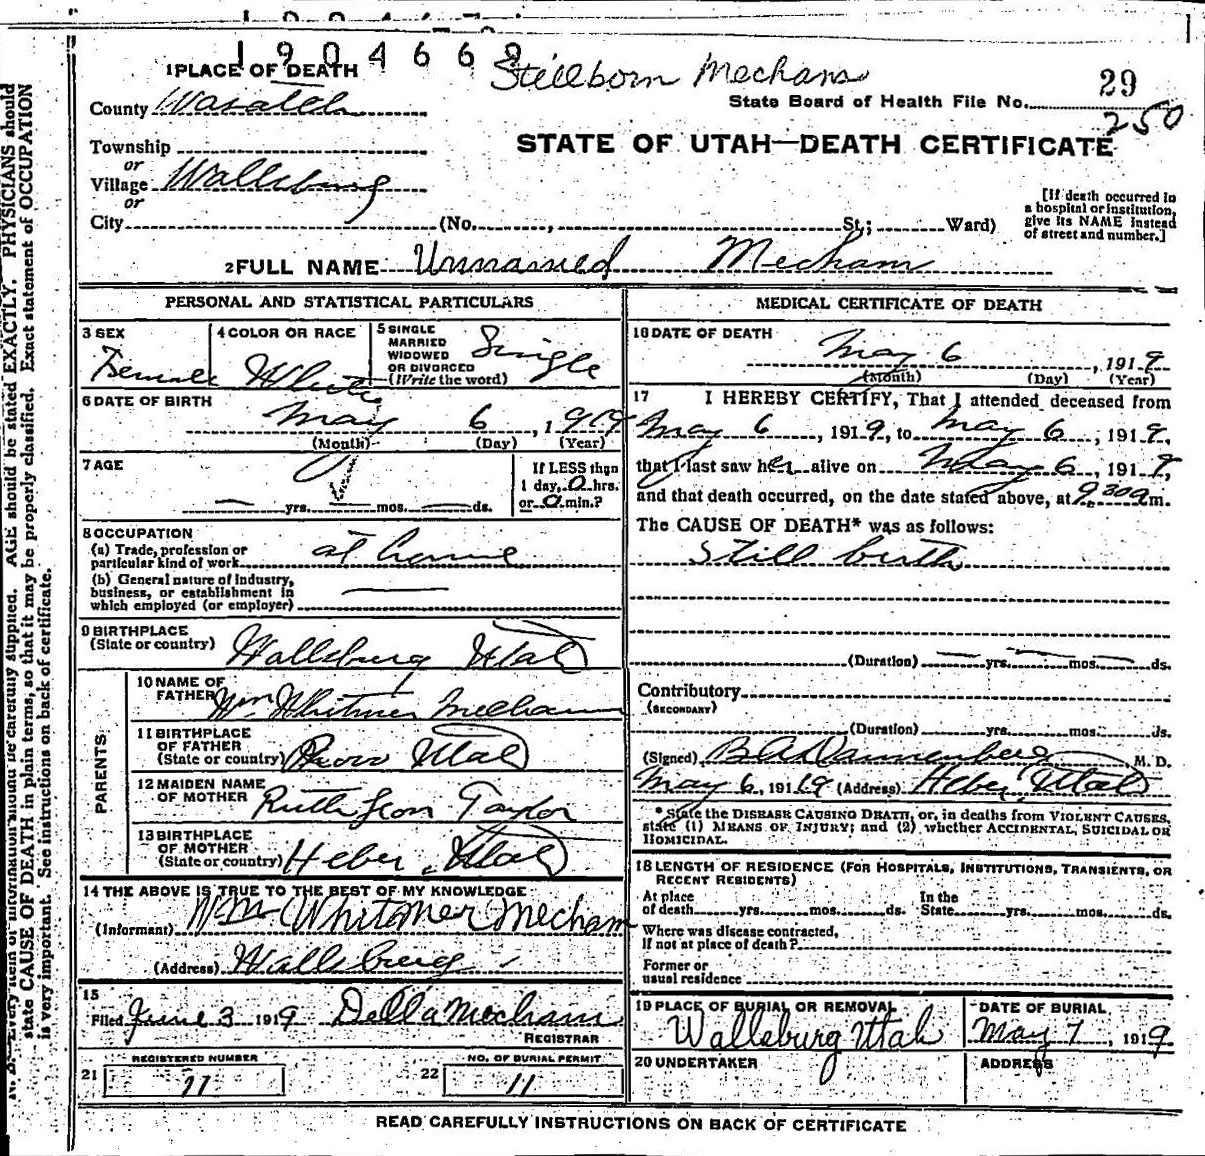 1904669
Stillborn Mecham
29
State Board of Health File No.
250
1 PLACE OF DEATH
County Wasatch
STATE OF UTAH—DEATH CERTIFICATE
Township
or
Village Wallsburg
or
City (No. , St.; Ward)
[If death occurred in
a hospital or institution,
give its NAME instead
of street and number.]
2 FULL NAME Unnamed Mecham
PERSONAL AND STATISTICAL PARTICULARS
3 SEX
Female
4 COLOR OR RACE
White
5 SINGLE
MARRIED
WIDOWED
OR DIVORCED
(Write the word)
Single
6 DATE OF BIRTH
May 6, 1919
(Month) (Day) (Year)
7 AGE
yrs. mos. ds.
If LESS than
1 day, 0 hrs.
or 0 min.?
8 OCCUPATION
(a) Trade, profession or
particular kind of work at home
(b) General nature of industry,
business, or establishment in
which employed (or employer)
9 BIRTHPLACE
(State or country) Wallsburg Utah
PARENTS
10 NAME OF
FATHER Wm Whitmer Mecham
11 BIRTHPLACE
OF FATHER
(State or country) Provo Utah
12 MAIDEN NAME
OF MOTHER Ruth Taylor
13 BIRTHPLACE
OF MOTHER
(State or country) Heber, Utah
14 THE ABOVE IS TRUE TO THE BEST OF MY KNOWLEDGE
(Informant) Wm Whitmer Mecham
(Address) Wallsburg
15
Filed June 3 1919 Della Mecham
REGISTRAR
21 REGISTERED NUMBER
11
22 NO. OF BURIAL PERMIT
11
MEDICAL CERTIFICATE OF DEATH
16 DATE OF DEATH
May 6, 1919
(Month) (Day) (Year)
17 I HEREBY CERTIFY, That I attended deceased from
May 6, 1919, to May 6, 1919,
that I last saw her alive on May 6, 1919,
and that death occurred, on the date stated above, at 9.30 a m.
The CAUSE OF DEATH* was as follows:
Still birth
(Duration) yrs. mos. ds.
Contributory
(SECONDARY)
(Duration) yrs. mos. ds.
(Signed) B A Dannenberg M. D.
May 6, 1919 (Address) Heber, Utah
*State the DISEASE CAUSING DEATH, or, in deaths from VIOLENT CAUSES,
state (1) MEANS OF INJURY; and (2) whether ACCIDENTAL, SUICIDAL OR
HOMICIDAL.
18 LENGTH OF RESIDENCE (FOR HOSPITALS, INSTITUTIONS, TRANSIENTS, OR
RECENT RESIDENTS)
At place
of death yrs. mos. ds.
In the
State yrs. mos. ds.
Where was disease contracted,
If not at place of death?
Former or
usual residence
19 PLACE OF BURIAL OR REMOVAL
Wallsburg Utah
DATE OF BURIAL
May 7, 1919
20 UNDERTAKER
ADDRESS
READ CAREFULLY INSTRUCTIONS ON BACK OF CERTIFICATE
N. B.—Every item of information should be carefully supplied. AGE should be stated EXACTLY. PHYSICIANS should
state CAUSE OF DEATH in plain terms, so that it may be properly classified. Exact statement of OCCUPATION
is very important. See instructions on back of certificate.